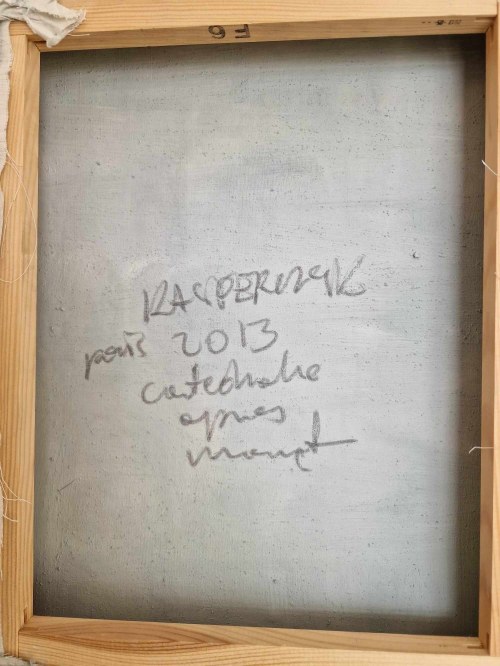 F6
KASPERCZYK
paris 2013
catedrale
apres
monet